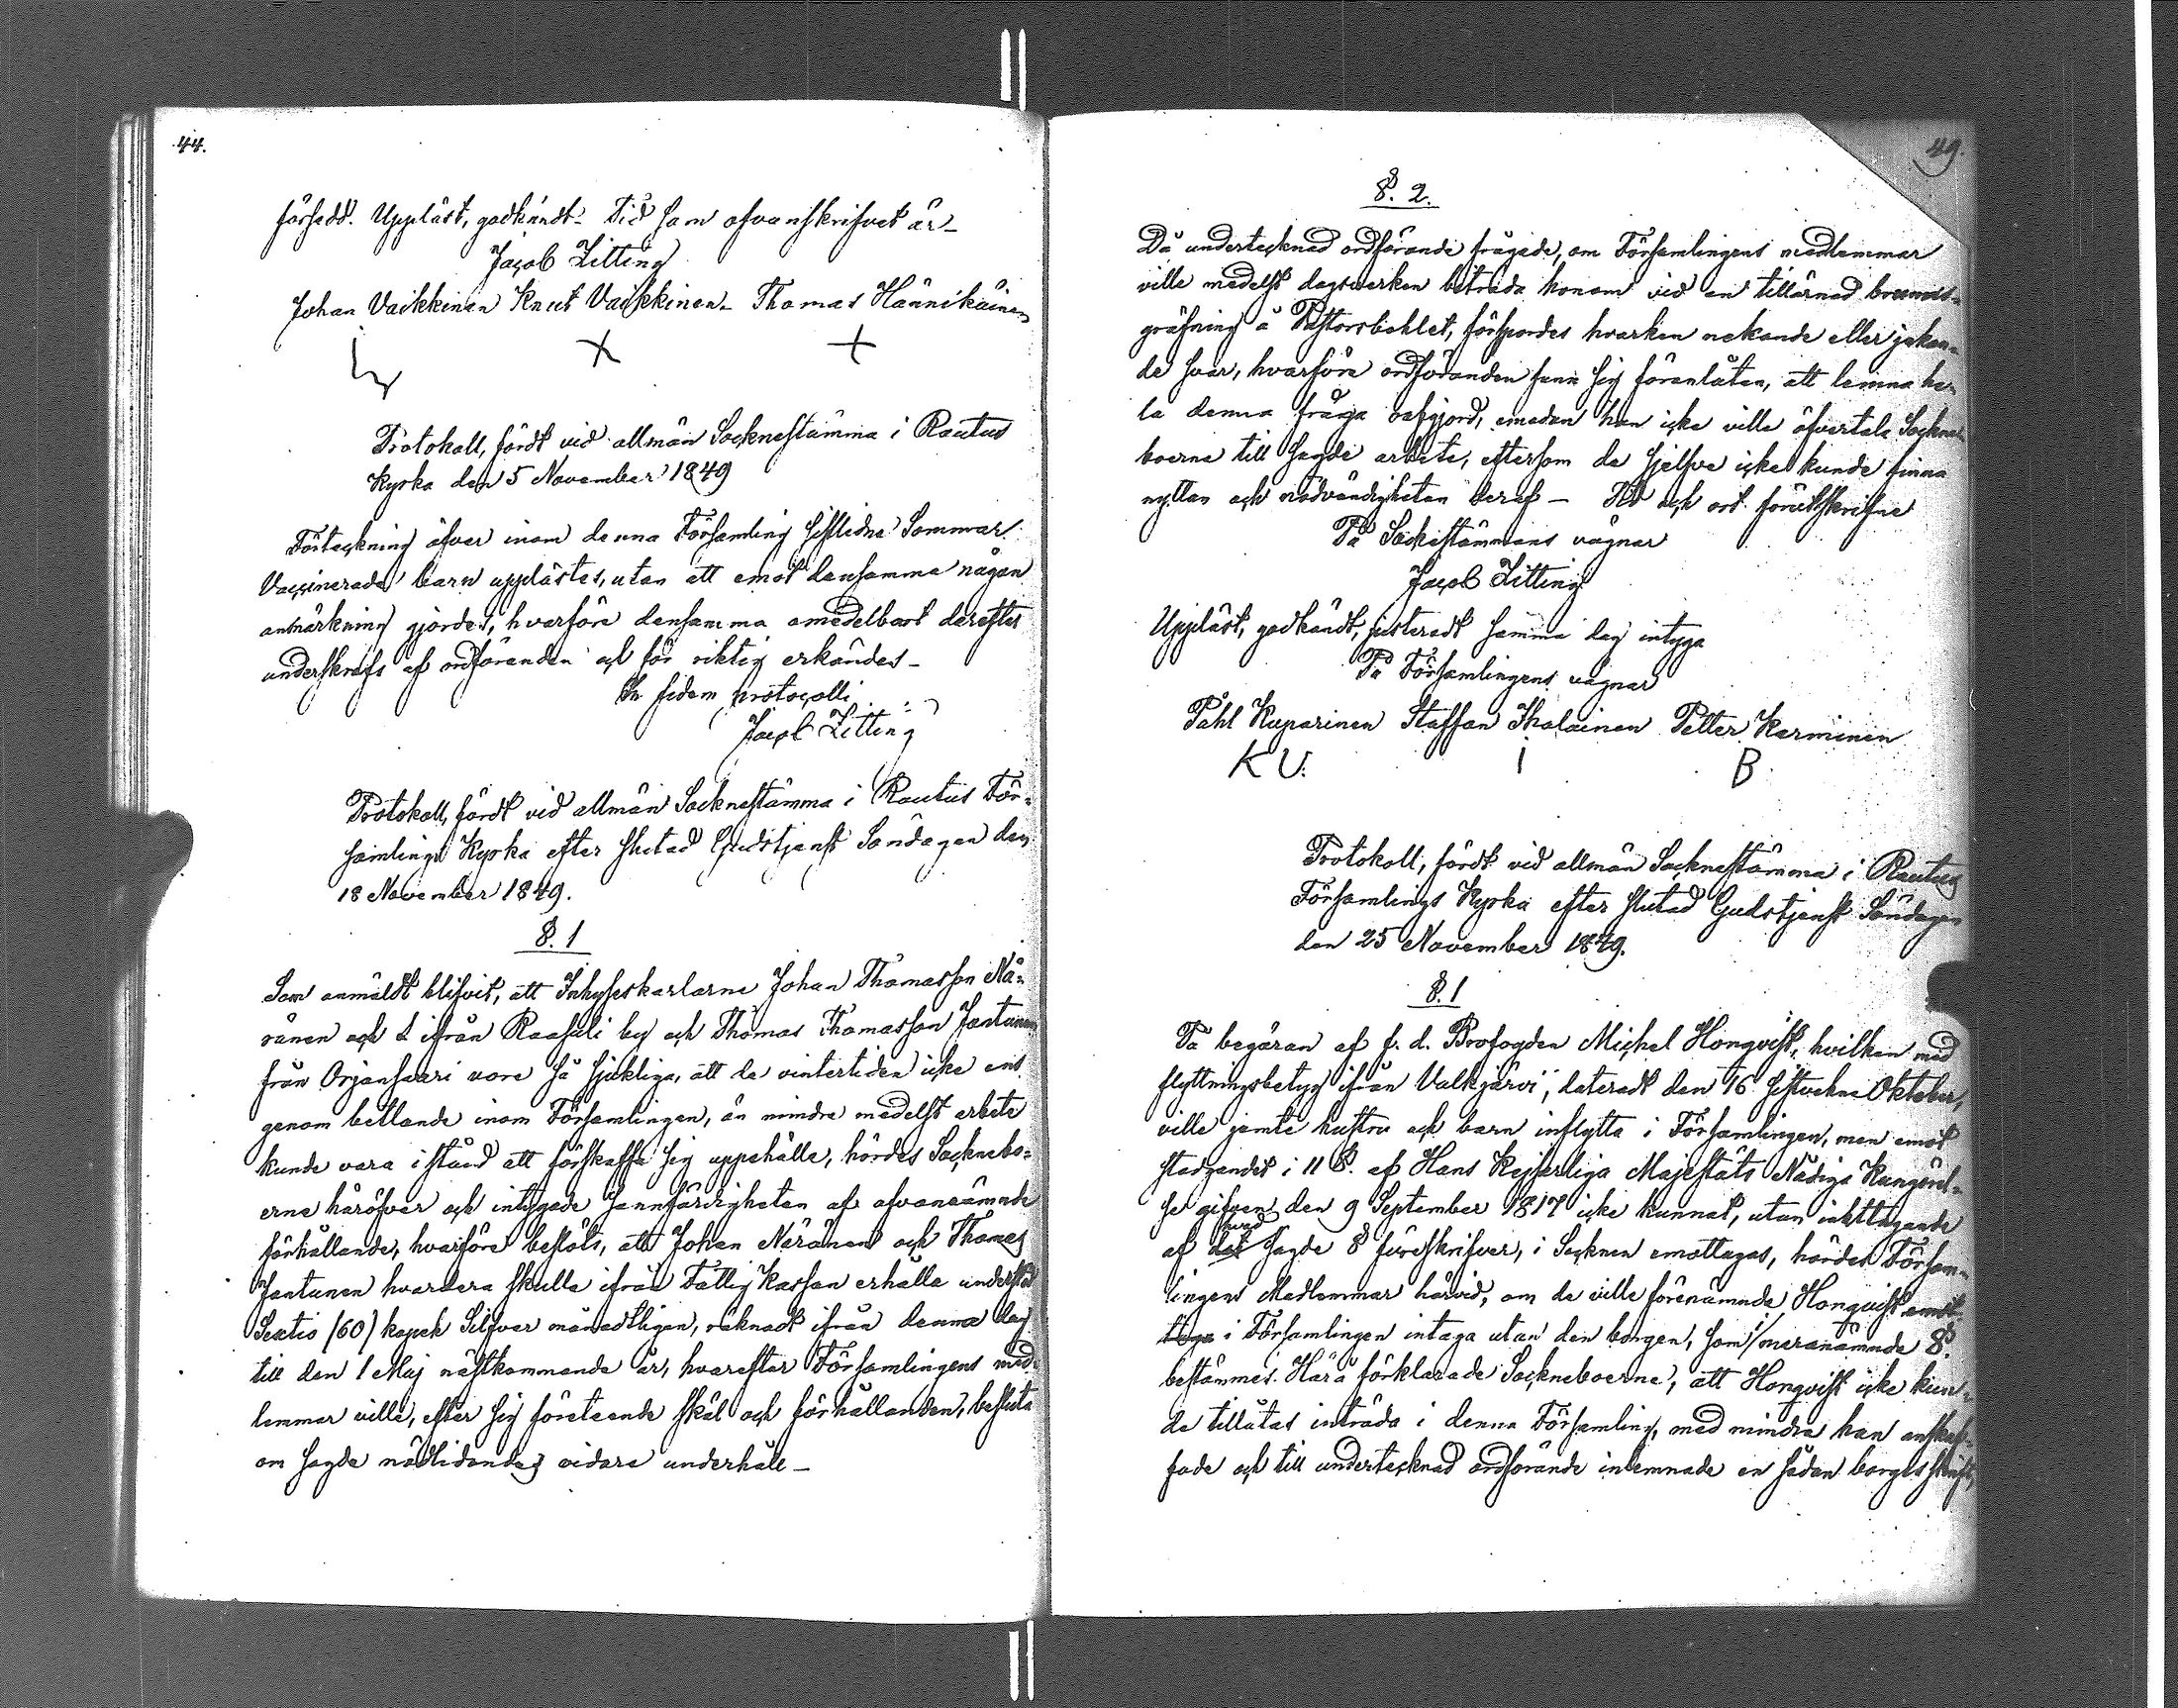 44.
försedd. Uppläst, godkändt. Tid som ofvanskrifvet är_
Jacob Zitting
Johan Vaikkinen Knut Vaikkinen_ Thomas Hännikäinen
Protokoll, fördt vid allmän Socknestämma i Rautus
Kyrka den 5 November 1849
Förteckning öfver inom denna Församling sistlidne Sommar
Vaccinerade barn upplästes, utan att emot densamma någon
anmärkning gjordes, hvarföre densamma omedelbart derefter
underskrefs af ordföranden och för riktig erkändes_
In fidem protocolli
Jacob Zitting
Protokoll, fördt vid allmän Socknestämma i Rautus För-
samlings Kyrka efter slutad Gudstjenst Söndagen den
18 November 1849.
§. 1
Som anmäldt blifvit, att Inhyseskarlarne Johan Thomasson Nä-
ränen och ifrån Raasuli by och Thomas Thomasson Jantunen
från Orjansaari vore så sjukliga, att de vintertiden icke ens
genom bettlande inom Församlingen, än mindre medelst arbete
kunde vara istånd att förskaffa sig uppehälle, hördes Sockнebo-
erne häröfver och intygade sannfärdigheten af ofvannämnde
förhållande, hvarföre beslöts, att Johan Näränen och Thomas
Jantunen hvardera skulle ifrån Fattig Kassan erhålla understöd
Sextio (60) kopek Silfver månadtligen, räknadt ifrån denna dag
till den 1 Maj nästkommande år, hvarefter Församlingens med-
lemmar ville, efter sig företeende skäl och förhållanden, besluta
om sagde nödlidandes vidare underhåll_
49.
§. 2.
Då undertecknad ordförande frågade, om Församlingens medlemmar
ville medelst dagsverken biträda honom vid en tillärnad brunns-
gräfning å Pastorsbohlet, förspordes hvarken nekande eller jakan-
de svar, hvarföre ordföranden fann sig föranlåten, att lemna he-
la denna fråga oafgjord, emedan han icke ville öfvertala Sockne-
boerne till sagde arbete, eftersom de sjelfve icke kunde finna
nyttan och nödvändigheten deraf_ Tid och ort förutskrifne
På Sockenstämmans vägnar
Jacob Zitting
Uppläst, godkändt, justeradt samma dag intyga
På Församlingens vägnar
Påhl Kuparinen Staffan Ihalainen Petter Karminen
K U. I B
Protokoll, fördt vid allmän Socknestämma i Rautus
Församlings Kyrka efter slutad Gudstjenst Söndagen
den 25 November 1849.
§. 1
På begäran af f. d. Brofogden Michel Honqvist, hvilken med
flyttningsbetyg ifrån Valkjärvi, dateradt den 16 sistvekne Oktober,
ville jemte hustru och barn inflytta i Församlingen, men emot
stadgandet i 11 §. af Hans Kejserliga Majestäts Nådiga Kungörel-
se gifven den 9 September 1817 icke kunnat, utan iakttagande
af hvad sagde § föreskrifver, i Socknen emottagas, hördes Försam-
lingens Medlemmar härvid, om de ville förenämnde Honqvist emot-
taga i Församlingen intaga utan den borgen, som i meranämnde §.
bestämmes. Härå förklarade Sockneboerne, att Honqvist icke kun-
de tillåtas inträda i denna Församling, med mindre han anskaf-
fade och till undertecknad ordförande inlemnade en sådan borgesskrift,